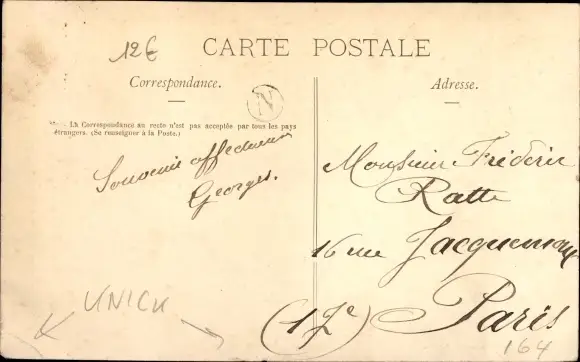 12€
CARTE POSTALE
Correspondance.
Adresse.
N
La Correspondance au recto n'est pas acceptée par tous les pays
étrangers. (Se renseigner à la Poste.)
Souvenir affectueux
Georges.
Monsieur Fréderic
Ratte
16 rue Jacquemont
Paris
(17e)
UNICK
164